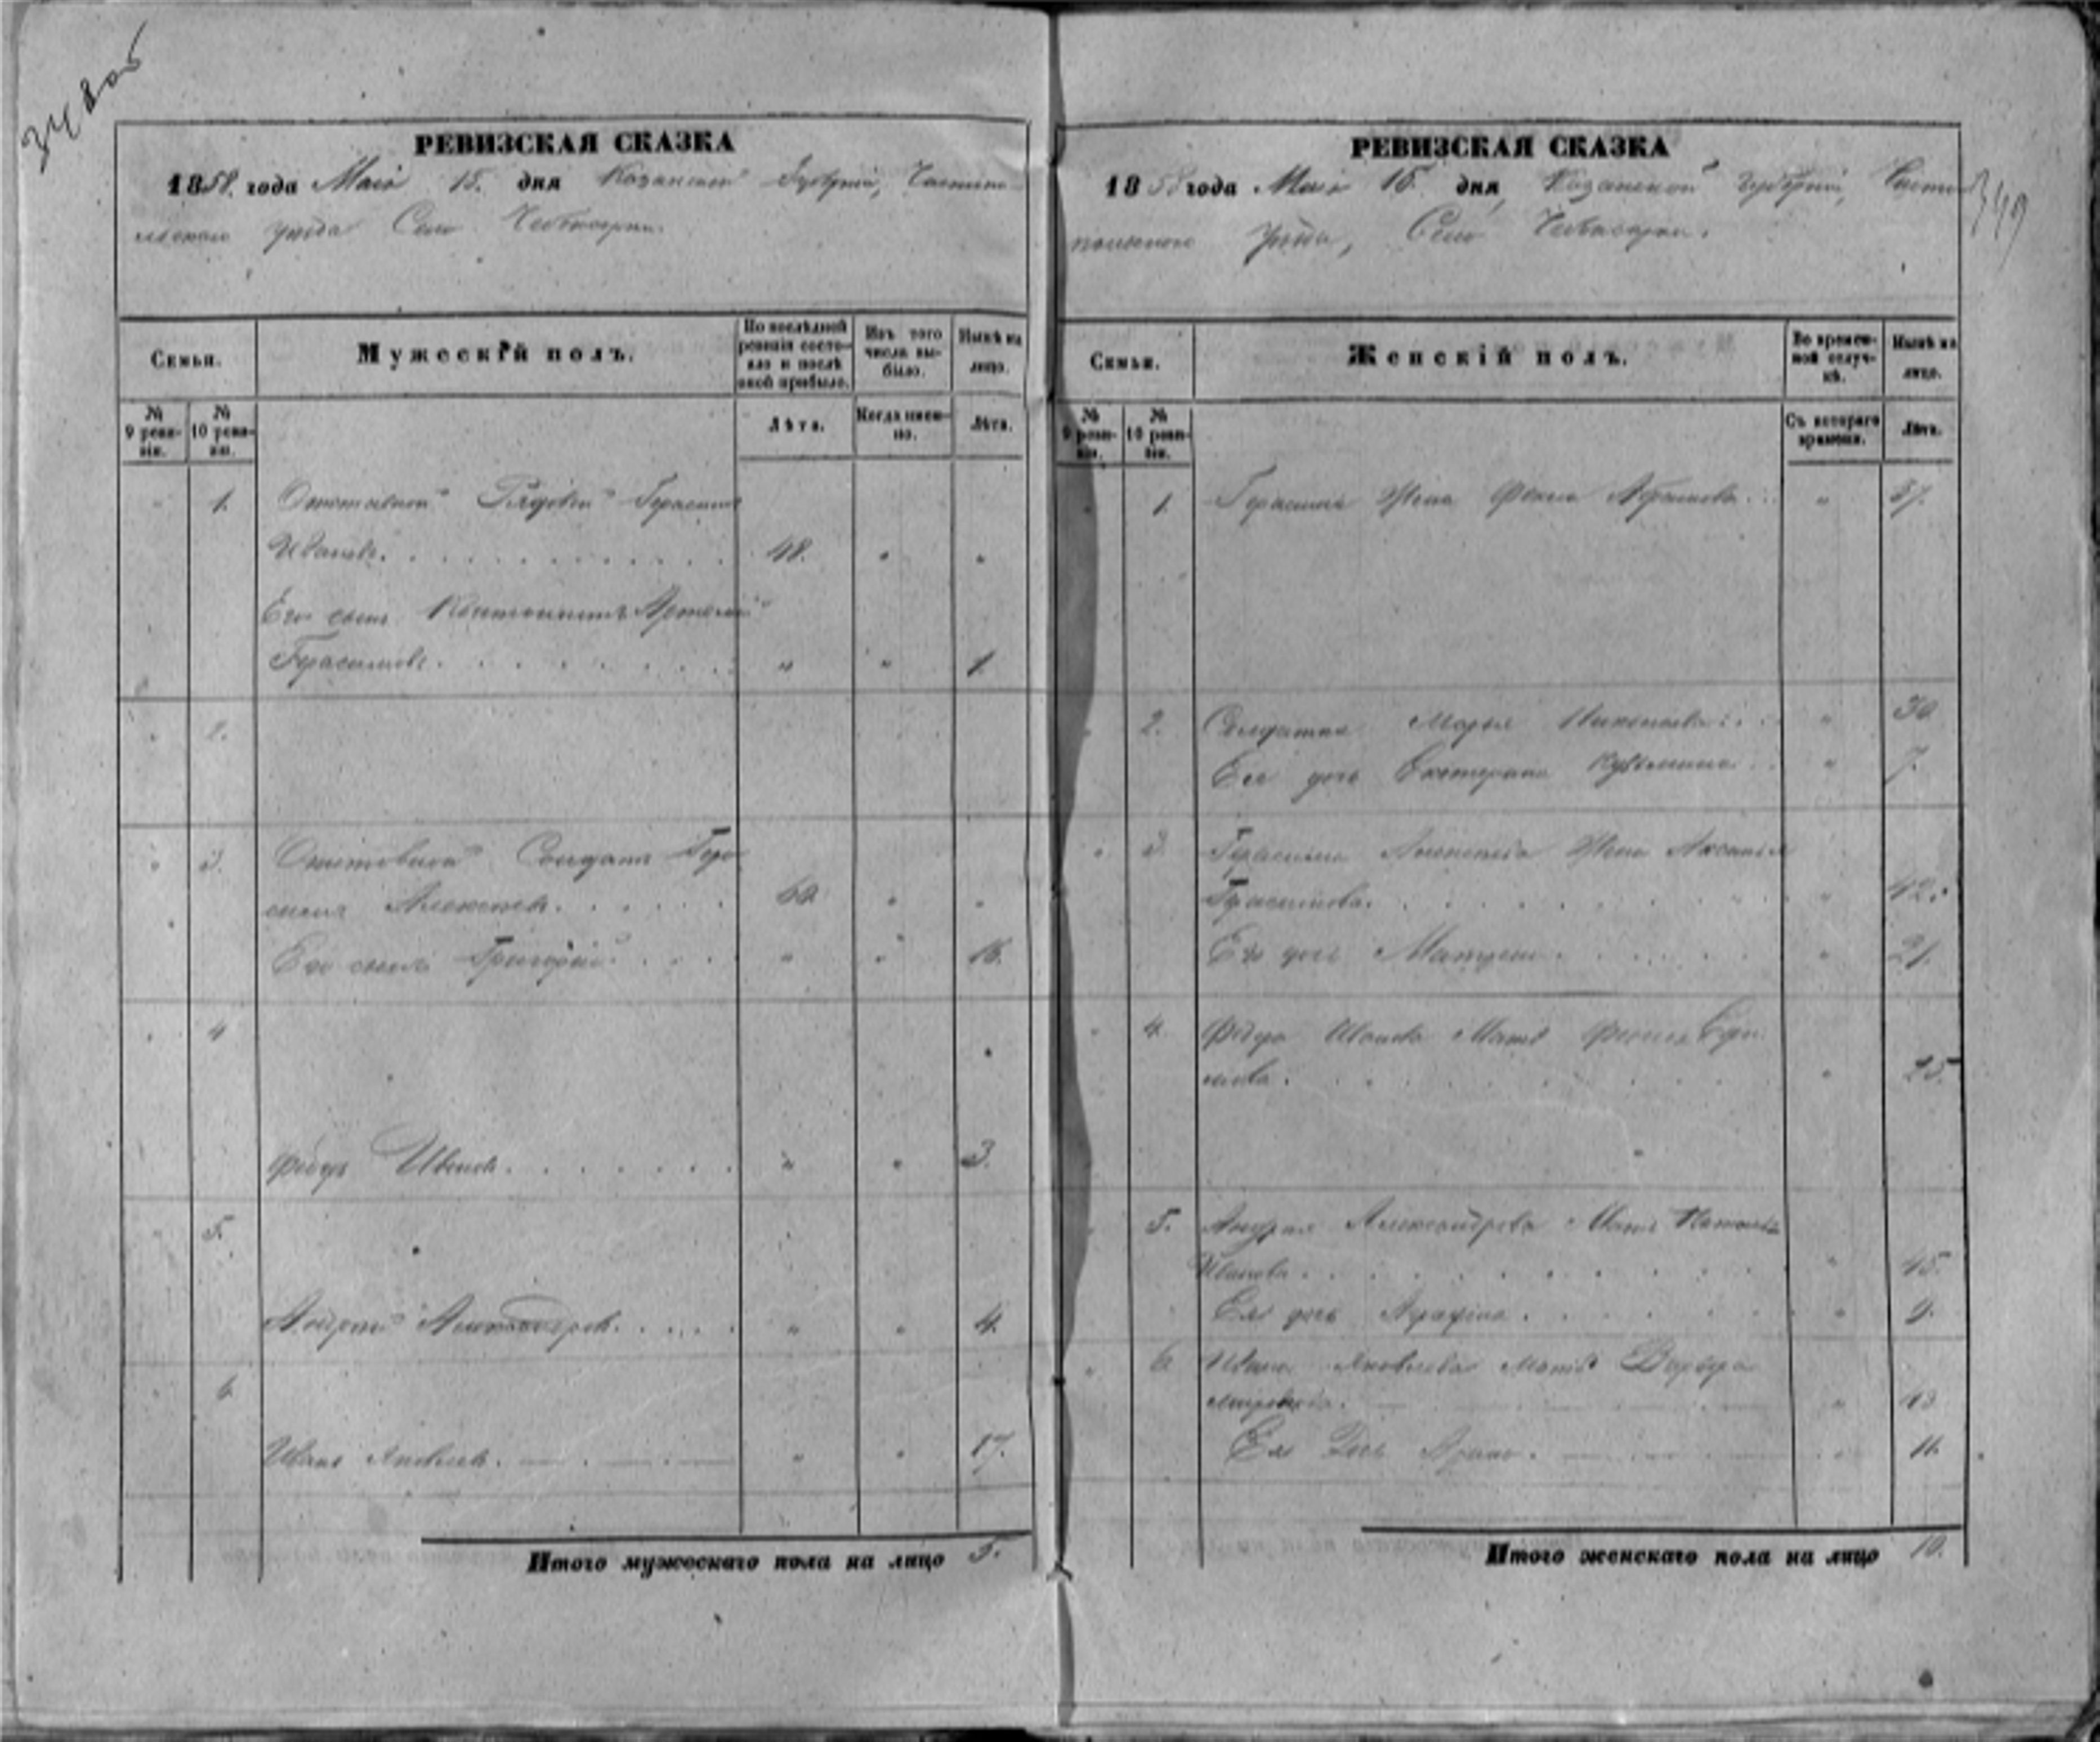 РЕВИЗСКАЯ СКАЗКА
1858. года Маія 15. дня Казанской Губерніи, Чистопо-
льскаго уезда Село Чебоксарка.
Семьи.
Мужескій полъ.
По последней ревизіи состояло и после оной прибыло.
Изъ того числа выбыло.
Ныне на лицо.
№ 9 ревизіи.
№ 10 ревизіи.
Лѣта.
Когда именно.
Лѣта.
1. Отставной Рядовой Герасимъ
Ивановъ. 48.
Его сынъ Кантонистъ Артемій
Герасимовъ. 1.
2.
3. Отставной Солдатъ Гера-
симъ Алексеевъ. 60
Его сынъ Григорій. 16.
4
Федоръ Ивановъ. 3.
5.
Андрей Александровъ. 4.
6.
Иванъ Яковлевъ. 17.
Итого мужескаго пола на лицо 5.
РЕВИЗСКАЯ СКАЗКА
1858 года Маія 15. дня, Казанской Губерніи, Чисто-
польскаго Уезда, Село Чебоксарка.
349
Семьи.
Женскій полъ.
Во временной отлучкѣ.
Ныне на лицо.
№ 9 ревизіи.
№ 10 ревизіи.
Съ котораго времени.
Лѣта.
1. Герасима Жена Фекла 37.
2. Солдатка Марья 30
Ея дочь Екатерина Кузьмина 7.
3 Герасима Алексеева Жена Аксинья
Герасимова. 42.
Его дочь Матрена. 21.
4. Федора Иванова Мать
25.
5. Андрея Александрова Мать Наталья
Иванова. 45.
Ея дочь 9.
6 Ивана Яковлева Мать Варвара
43
Ея Дочь Арина. 11.
Итого женскаго пола на лицо 10.